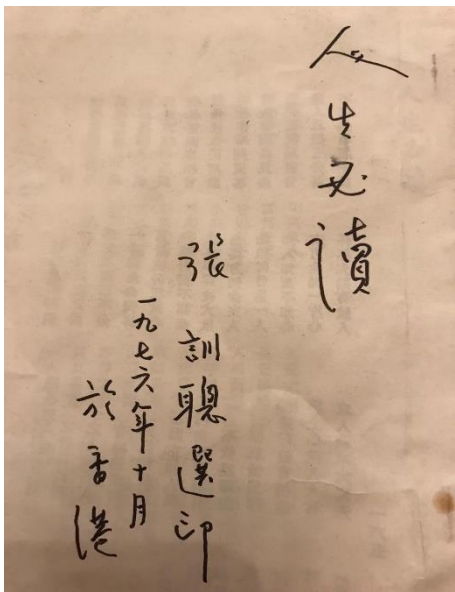 人生必讀
張訓聰選印
一九七六年十月
於香港